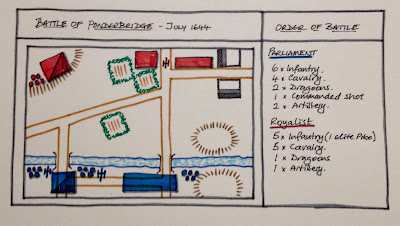 BATTLE OF PONDERBRIDGE - JULY 1644
ORDER OF BATTLE
PARLIAMENT
6 x Infantry.
4 x Cavalry.
2 x Dragoons.
1 x Commanded shot
2 x Artillery.
ROYALIST
5 x Infantry (1 elite Pike)
5 x Cavalry.
1 x Dragoons
1 x Artillery.